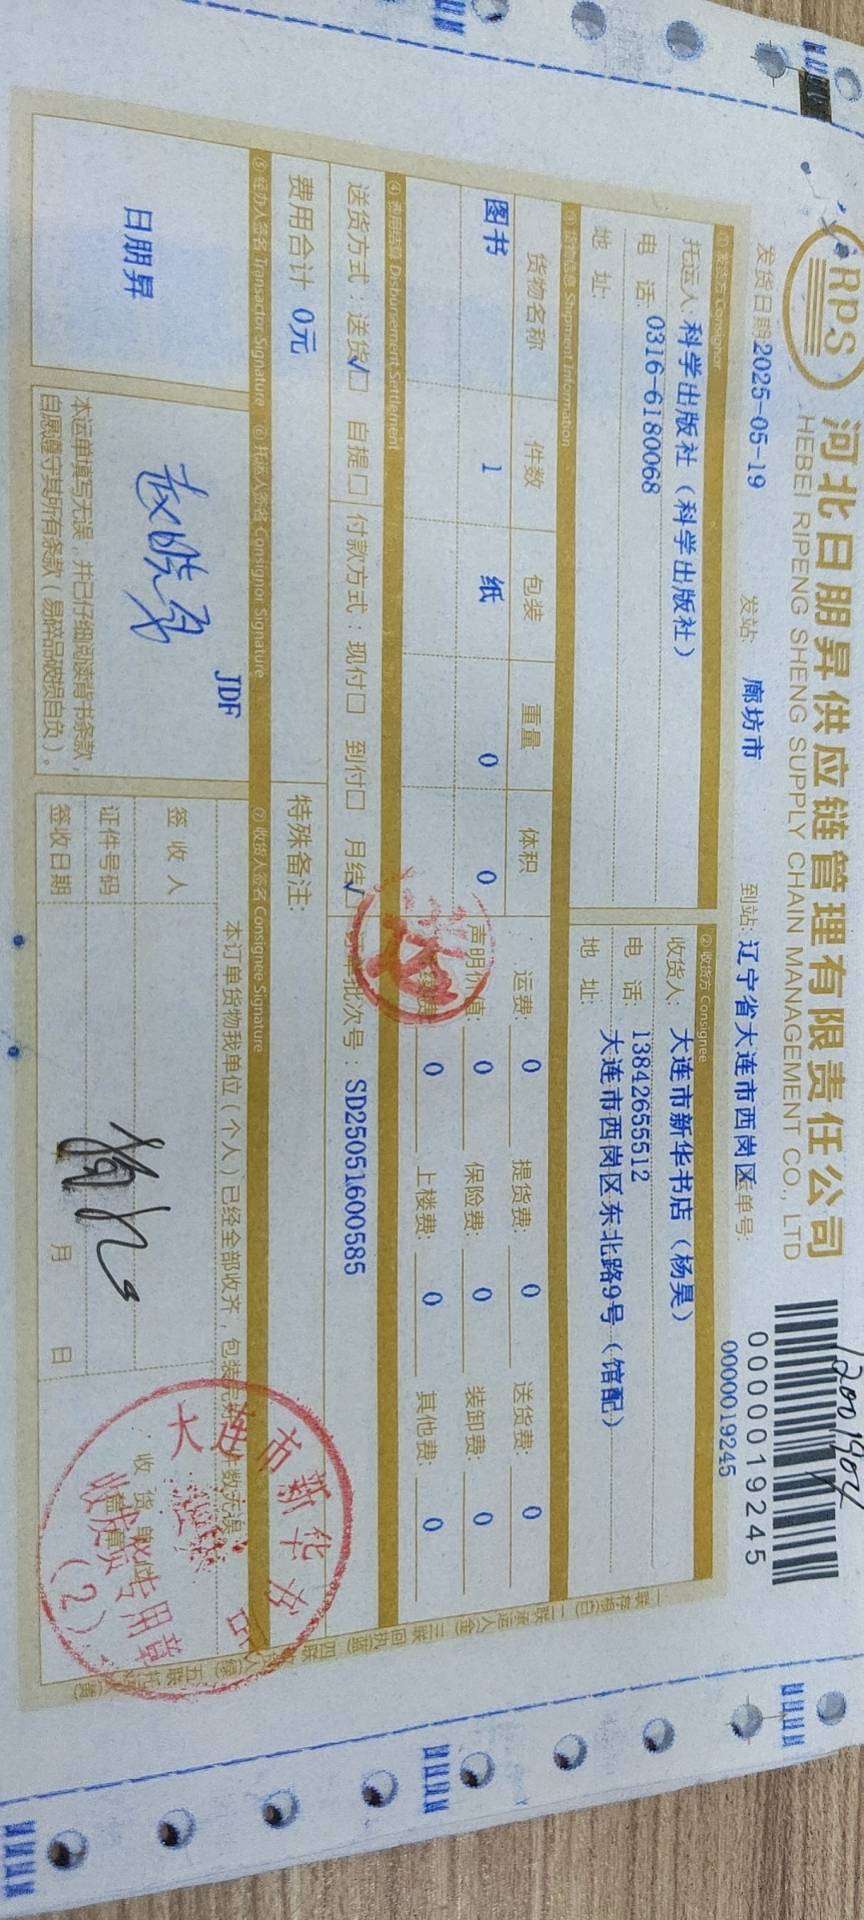 RPS
河北日朋昇供应链管理有限责任公司
HEBEI RIPENG SHENG SUPPLY CHAIN MANAGEMENT CO., LTD
1200.1904
0000019245
发货日期 2025-05-19 发站: 廊坊市 到站: 辽宁省大连市西岗区 单号: 0000019245
① 发货方 Consignor
② 收货方 Consignee
托运人: 科学出版社（科学出版社） 收货人: 大连市新华书店（杨昊）
电 话: 0316-6180068 电 话: 13842655512
地 址: 地 址: 大连市西岗区东北路9号（馆配）
Shipment Information
货物名称 件数 包装 重量 体积 运费: 0 提货费: 0 送货费: 0
图书 1 纸 0 0 声明价值: 0 保险费: 0 装卸费: 0
0 上楼费: 0 其他费: 0
④ 费用结算 Disbursement Settlement
送货方式：送货☑ 自提□ 付款方式：现付□ 到付□ 月结☑ 批次号：SD25051600585
费用合计 0元 特殊备注:
⑤ 经办人签名 Transactor Signature ⑥ 托运人签名 Consignor Signature ⑦ 收货人签名 Consignee Signature
日朋昇
JDF
本运单填写无误，并已仔细阅读背书条款，
自愿遵守其所有条款（易碎品破损自负）。
本订单货物我单位（个人）已经全部收齐，包装完好，件数无误
签收人
证件号码
签收日期 月 日
大连市新华书店
收货专用章
(2)